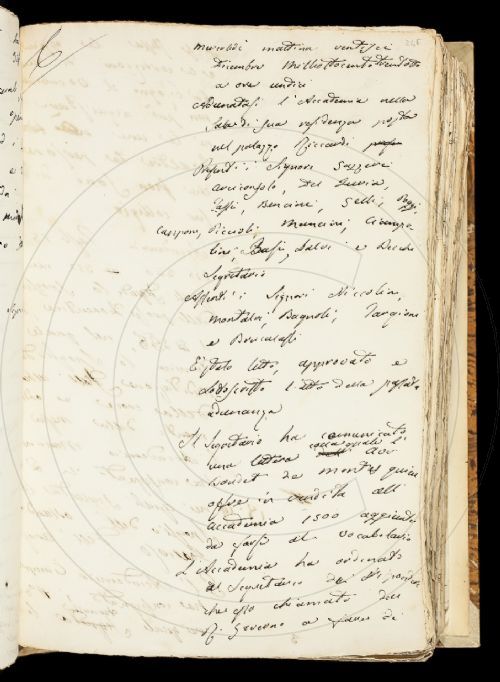 246
Mercoledì mattina ventisei
Dicembre Milleottocentotrentotto
a ore undici
Adunatasi l'Accademia nella
Sala di sua residenza posta
nel palazzo Riccardi
Presenti i Signori Gazzeri
arciconsolo, Del Furia,
Tassi, Bencini, Selli, Poggi,
Capponi, Piccoli, Mancini, Ciampo
lini, Bassi, Salvi e Becchi
Segretario
Assenti i Signori Niccolini,
Montalvi, Bagnoli, Targioni
e Brucalassi
È stato letto, approvato e
sottoscritto l'atto della passata
adunanza
Il Segretario ha comunicato
una lettera colla quale l'
de
offre in vendita all'
Accademia 1500 aggiunte
da farsi al Vocabolario
L'Accademia ha ordinato
al Segretario di
che esso chiamato dal
R. Governo a di